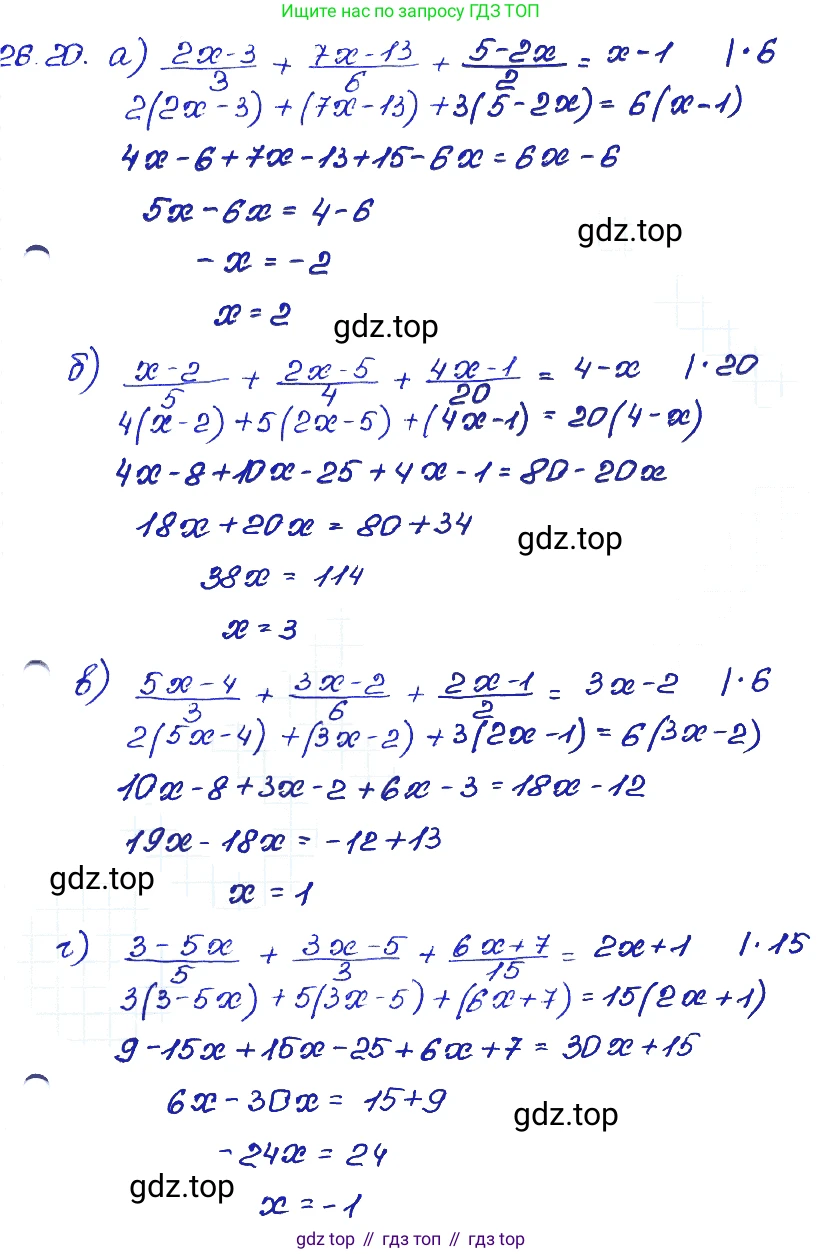 Ищите нас по запросу ГДЗ ТОП
26.20. а) (2x-3)/3 + (7x-13)/6 + (5-2x)/2 = x-1 |·6
2(2x-3)+(7x-13)+3(5-2x)=6(x-1)
4x-6+7x-13+15-6x=6x-6
5x-6x=4-6
gdz.top
-x=-2
x=2
gdz.top
б) (x-2)/5 + (2x-5)/4 + (4x-1)/20 = 4-x |·20
4(x-2)+5(2x-5)+(4x-1)=20(4-x)
4x-8+10x-25+4x-1=80-20x
18x+20x=80+34
gdz.top
38x=114
x=3
в) (5x-4)/3 + (3x-2)/6 + (2x-1)/2 = 3x-2 |·6
2(5x-4)+(3x-2)+3(2x-1)=6(3x-2)
10x-8+3x-2+6x-3=18x-12
19x-18x=-12+13
gdz.top
x=1
г) (3-5x)/5 + (3x-5)/3 + (6x+7)/15 = 2x+1 |·15
3(3-5x)+5(3x-5)+(6x+7)=15(2x+1)
9-15x+15x-25+6x+7=30x+15
6x-30x=15+9
gdz.top
-24x=24
gdz.top
x=-1
gdz top // гдз топ // gdz top